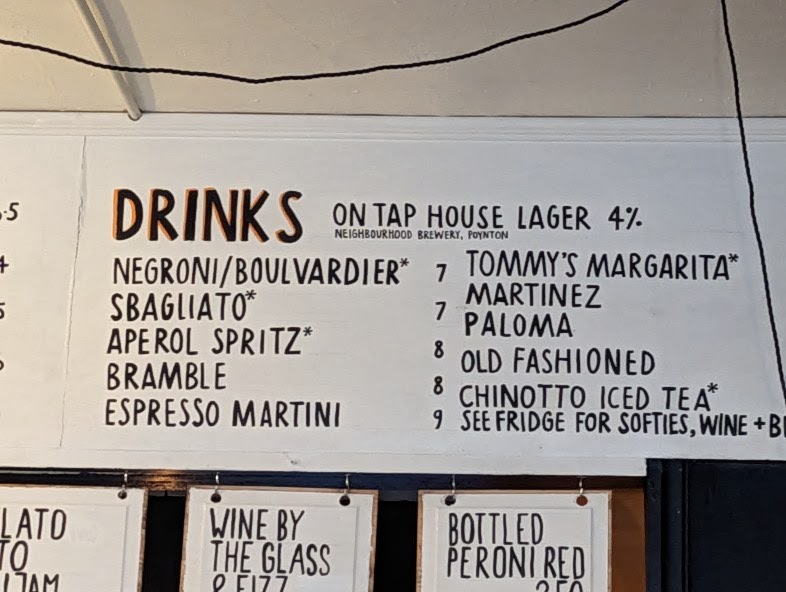 DRINKS ON TAP HOUSE LAGER 4%
NEIGHBOURHOOD BREWERY, POYNTON
NEGRONI/BOULVARDIER* 7
SBAGLIATO* 7
APEROL SPRITZ* 8
BRAMBLE 8
ESPRESSO MARTINI 9
TOMMY'S MARGARITA*
MARTINEZ
PALOMA
OLD FASHIONED
CHINOTTO ICED TEA*
SEE FRIDGE FOR SOFTIES, WINE +
WINE BY
THE GLASS
& FIZZ
BOTTLED
PERONI RED